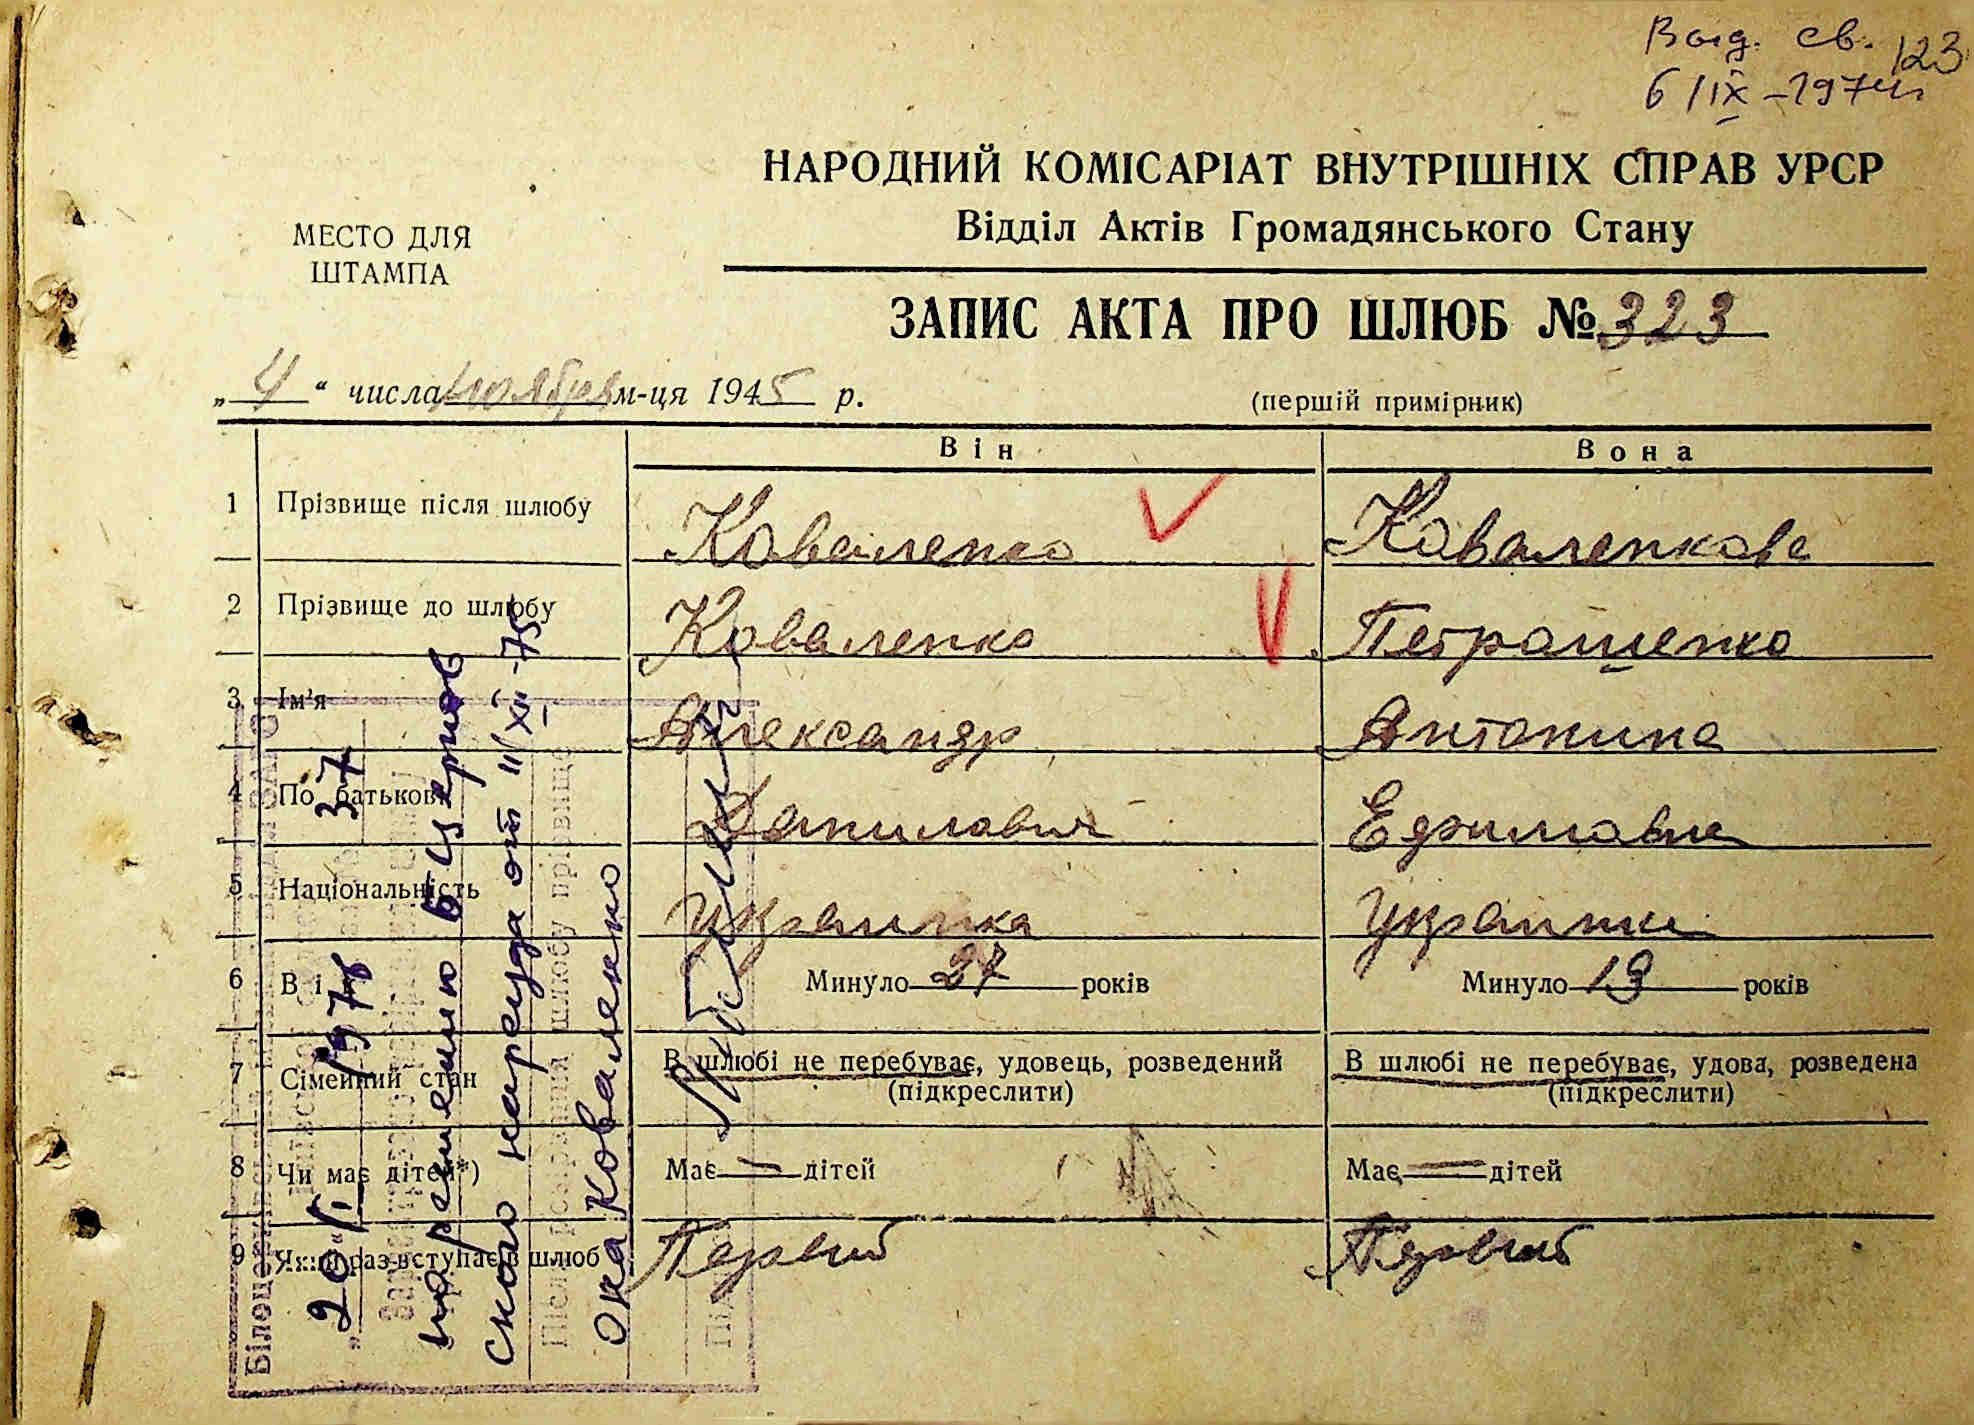 Выд. св. 123
6/IX-1974г
НАРОДНИЙ КОМІСАРІАТ ВНУТРІШНІХ СПРАВ УРСР
Відділ Актів Громадянського Стану
МЕСТО ДЛЯ
ШТАМПА
ЗАПИС АКТА ПРО ШЛЮБ № 323
„4“ числа ноября м-ця 1945 р.
(першій примірник)
Він Вона
1 Прізвище після шлюбу Коваленко Коваленкова
2 Прізвище до шлюбу Коваленко Петрашенко
3 Ім'я Александр Антонина
4 По батькові Данилович Ефимовна
5 Національність Украинка Украинка
6 Вік Минуло 27 років Минуло 19 років
7 Сімейний стан В шлюбі не перебуває, удовець, розведений В шлюбі не перебуває, удова, розведена
(підкреслити) (підкреслити)
8 Чи має дітей*) Має — дітей Має — дітей
9 Який раз вступає в шлюб Первый Первый
„20“ I 1976 37
по решению Б Церков
ского нарсуда от 11/XII-75
Після розірвання шлюбу прізвище
она Коваленко